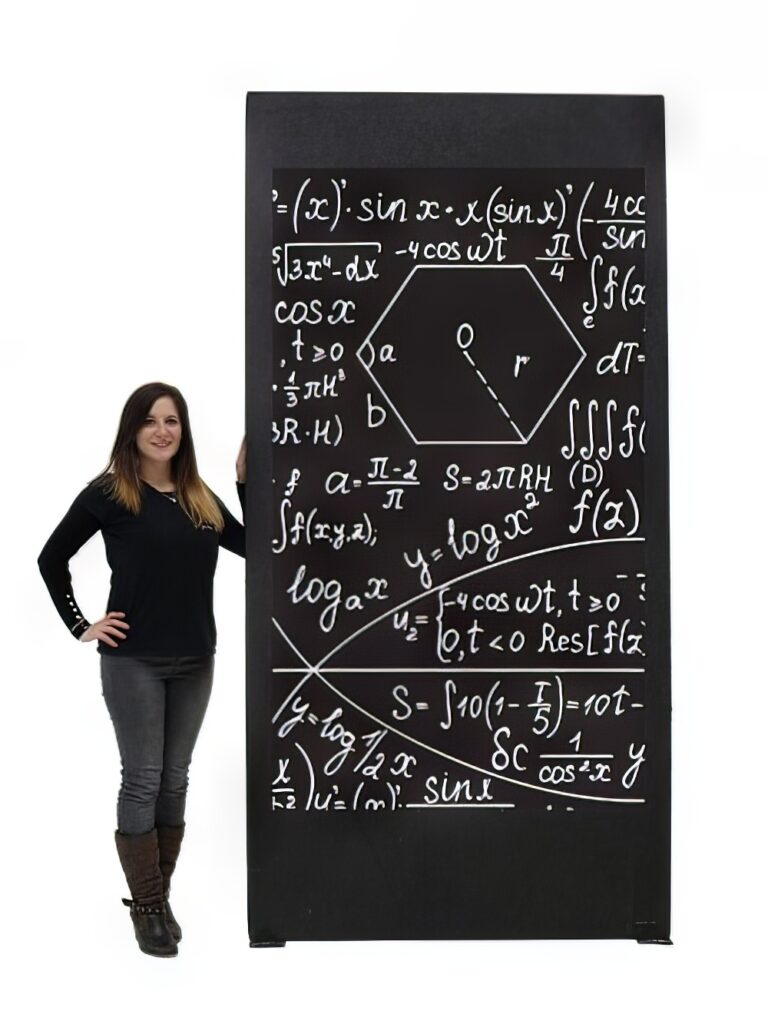 '=(x)'·sin x·x(sin x)'(-4co/sin
⁵√3x⁴-dx -4cos ωt π/4
cos x ∫e f(x
, t≥0 a O r dT=
·1/3 πH³
b
3R·H) ∫∫∫f(
· f a=π-2/π S=2πRH (D)
∫f(x,y,z); y=log x² f(z)
logₐx
u₂={-4cos ωt, t≥0
0, t<0 Res[f(z
S=∫10(1-I/5)=10t-
y=log 1/2 x δc 1/cos²x y
x/h2)u'=(m)'· sin x